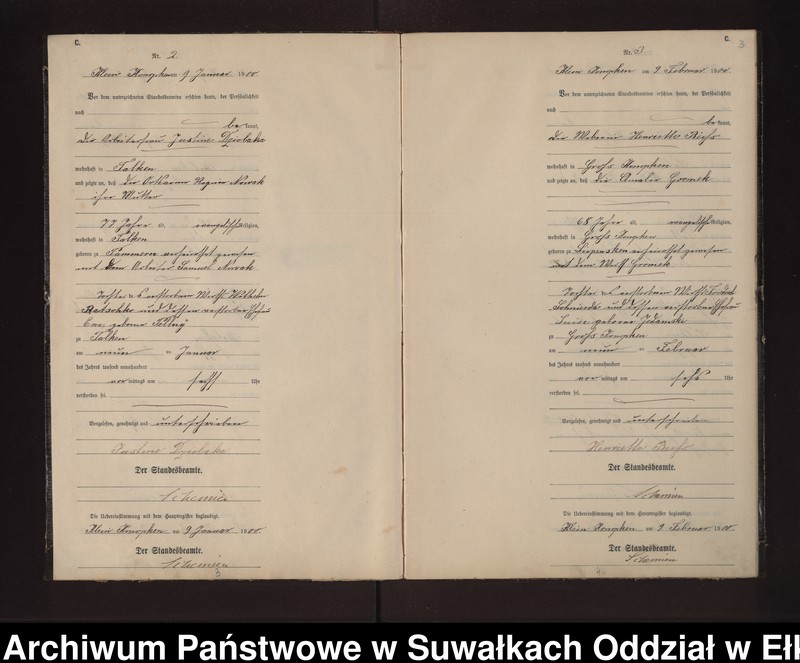 C.
Nr. 2
Klein Konopken am 9 Januar 1900.
Vor dem unterzeichneten Standesbeamten erschien heute, der Persönlichkeit
nach
be kannt,
die Arbeiterfrau Justine
wohnhaft in Talken
und zeigte an, daß die Regine Nowak
ihre Mutter
77 Jahre a. evangelischer Religion,
wohnhaft in Talken
geboren zu verheirathet gewesen
mit dem Arbeiter Samuel Nowak
Tochter des verstorbenen Wirth Wilhelm
und dessen verstorbener Ehefrau
geborene
zu Talken
am neun ten Januar
des Jahres tausend neunhundert
vor mittags um sechs Uhr
verstorben sei.
Vorgelesen, genehmigt und unterschrieben
Justine
Der Standesbeamte.
Die Uebereinstimmung mit dem Hauptregister beglaubigt.
Klein Konopken am 9 Januar 1900.
Der Standesbeamte.
C.
3
Nr. 3.
Klein Konopken am 9. Februar 1900.
Vor dem unterzeichneten Standesbeamten erschien heute, der Persönlichkeit
nach
be kannt,
die Weberin Henriette
wohnhaft in Groß Konopken
und zeigte an, daß die Amalie Gromek
68 Jahre a. evangelischer Religion,
wohnhaft in Groß Konopken
geboren zu verheirathet gewesen
mit dem Wirth Gromek
Tochter des verstorbenen Wirth
und dessen verstorbener Ehefrau
Luise geborene
zu Groß Konopken
am neun ten Februar
des Jahres tausend neunhundert
vor mittags um sechs Uhr
verstorben sei.
Vorgelesen, genehmigt und unterschrieben
Henriette
Der Standesbeamte.
Die Uebereinstimmung mit dem Hauptregister beglaubigt.
Klein Konopken am 9. Februar 1900.
Der Standesbeamte.
Archiwum Państwowe w Suwałkach Oddział w Ełk